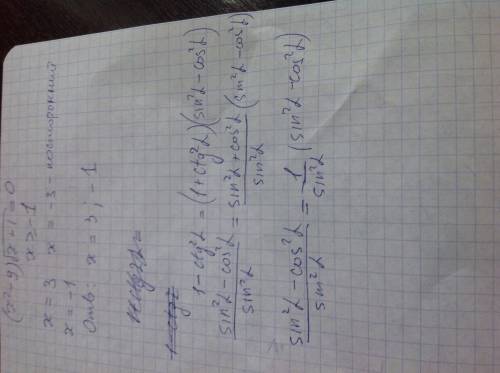 (x²-9)√x+1=0
x=3 x=-3 - посторонний
x=-1 x≥-1
Отв: x=3; -1
1-ctg²α=(1+ctg²α)(sin²α-cos²α)
(sin²α-cos²α)/sin²α=(sin²α+cos²α)/sin²α(sin²α-cos²α)
(sin²α-cos²α)/sin²α=1/sin²α(sin²α-cos²α)